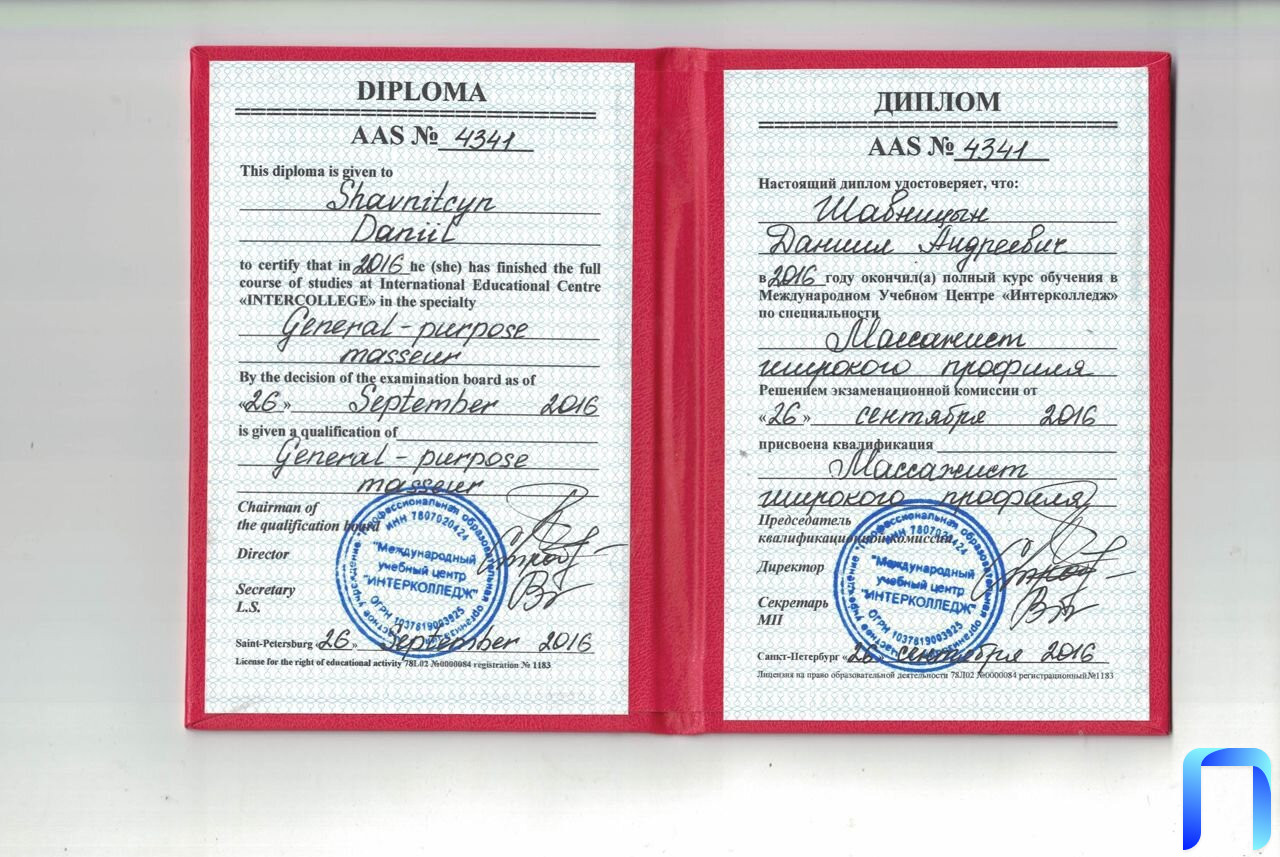 DIPLOMA
AAS № 4341
This diploma is given to
Shavnitcyn
Daniil
to certify that in 2016 he (she) has finished the full
course of studies at International Educational Centre
«INTERCOLLEGE» in the specialty
General-purpose
masseur
By the decision of the examination board as of
«26» September 2016
is given a qualification of
General-purpose
masseur
Chairman of
the qualification board
Director
Secretary
L.S.
Saint-Petersburg «26» September 2016
License for the right of educational activity 78L02 №0000084 registration № 1183
ИНН 7807020424
"Международный
учебный центр
"ИНТЕРКОЛЛЕДЖ"
ОГРН 1037819003925
ДИПЛОМ
AAS № 4341
Настоящий диплом удостоверяет, что:
Шавницын
Даниил Андреевич
в 2016 году окончил(а) полный курс обучения в
Международном Учебном Центре «Интерколледж»
по специальности
Массажист
широкого профиля
Решением экзаменационной комиссии от
«26» сентября 2016
присвоена квалификация
Массажист
широкого профиля
Председатель
квалификационной комиссии
Директор
Секретарь
МП
Санкт-Петербург «26» сентября 2016
Лицензия на право образовательной деятельности 78Л02 №0000084 регистрационный№1183
ИНН 7807020424
"Международный
учебный центр
"ИНТЕРКОЛЛЕДЖ"
ОГРН 1037819003925